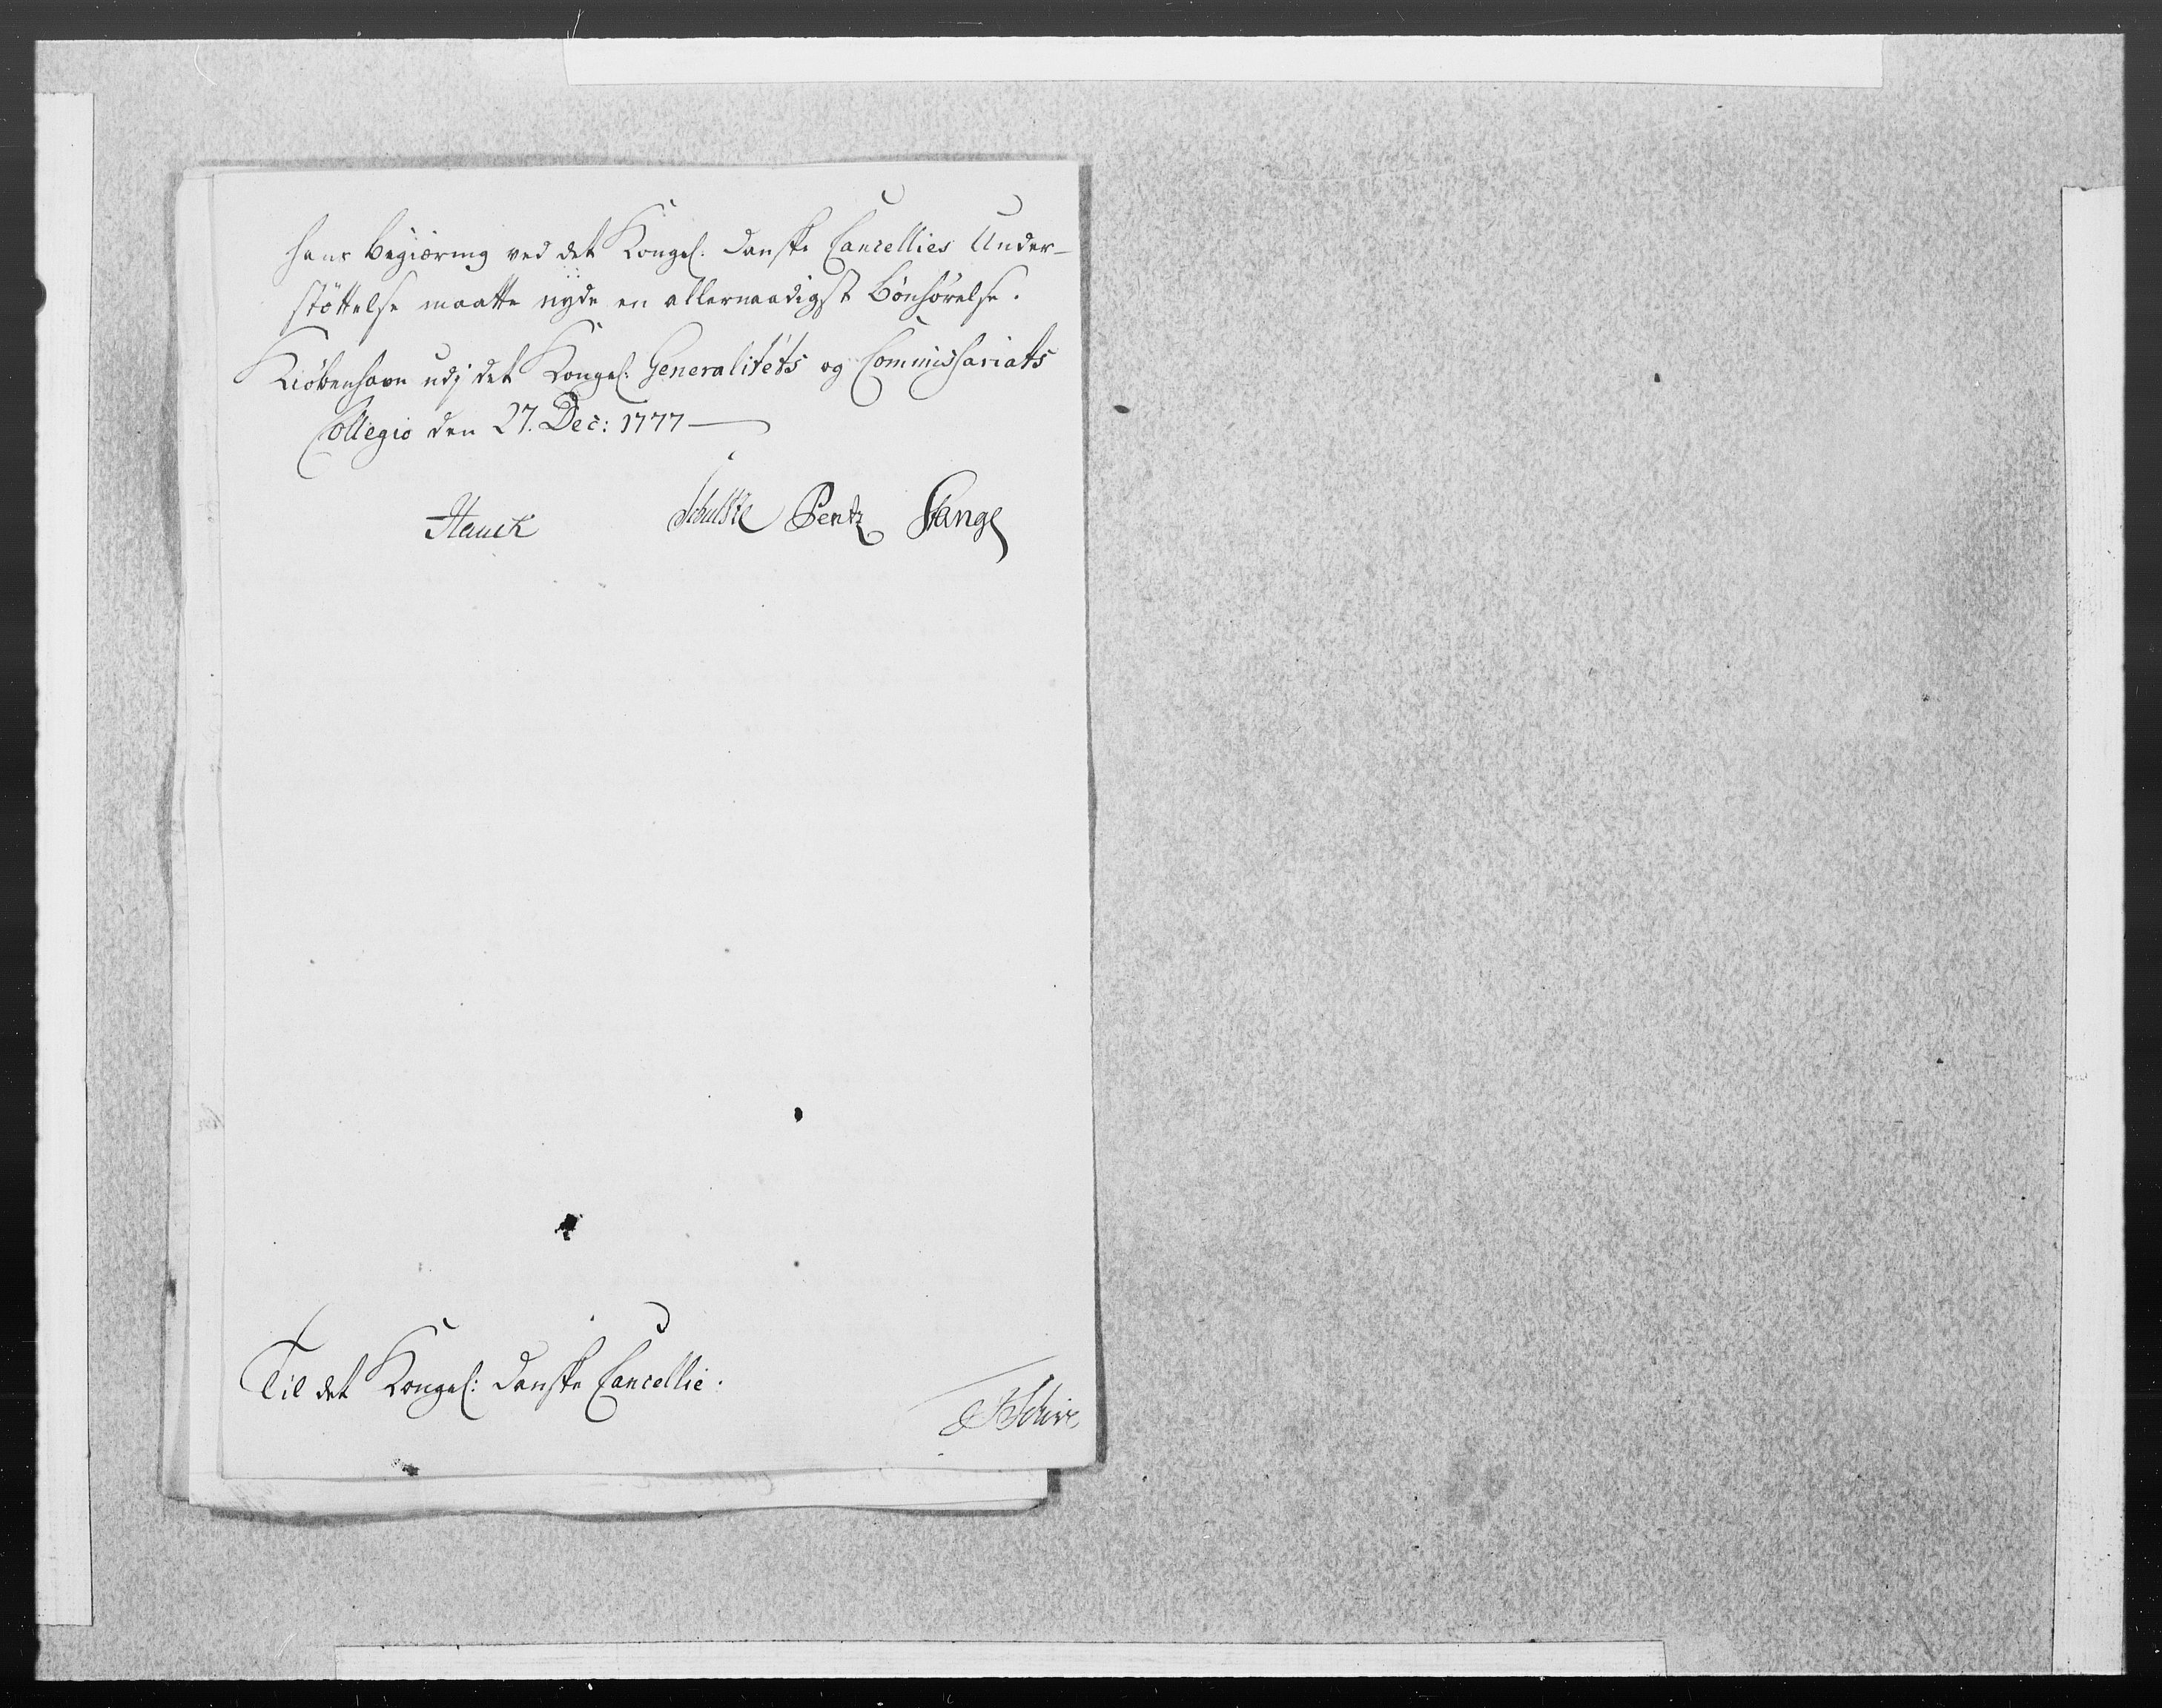 hans begiæring ved det Kongel. Danske Cancellies Under-
stöttelse maatte nyde en allernaadigst Bönhörelse.
Kiöbenhavn udj det Kongel: Generalitets og Commissariats
Collegio den 27. Dec: 1777
Hauch Schultze Pentz Stange
Til det Kongel: Danske Cancellie.